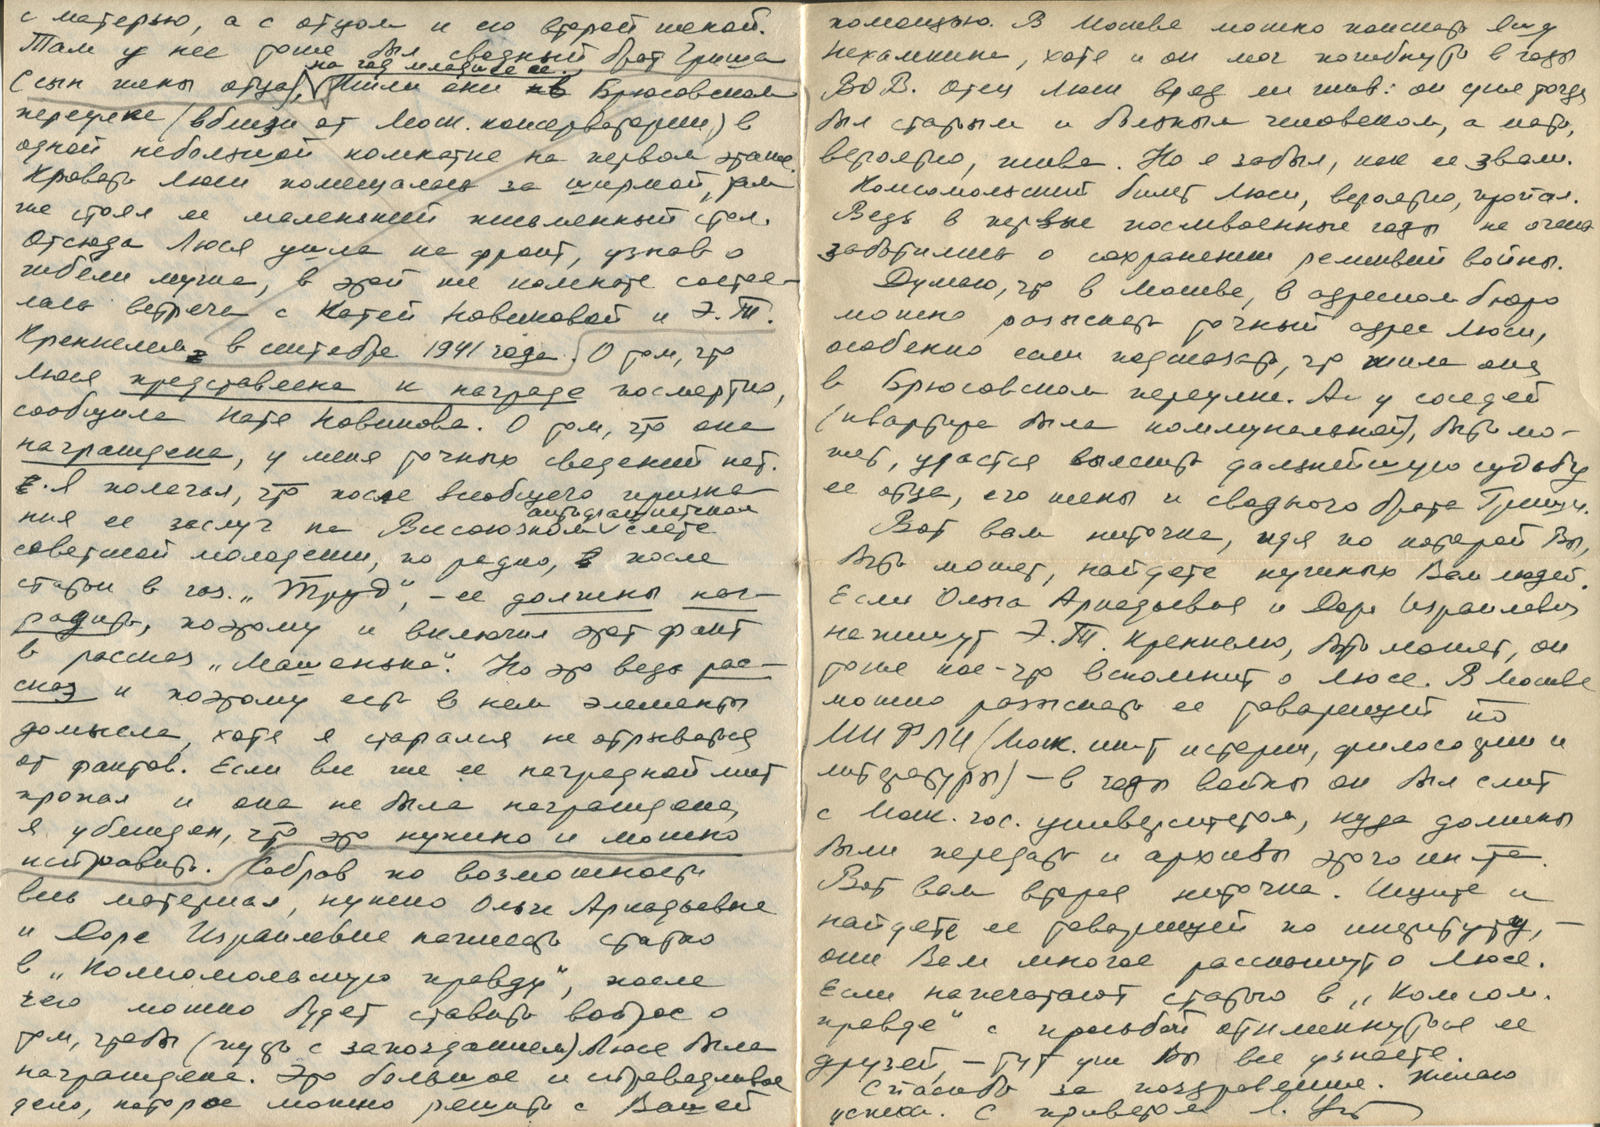 с матерью, а с отцом и его второй женой.
Там у нее тоже был сводный брат Гриша
на год младше ее.
(сын жены отца), Жили они в Брюсовском
переулке (вблизи от Моск. консерватории) в
одной небольшой комнатке на первом этаже.
Кровать Люси помещалась за ширмой, там
же стоял ее маленький письменный стол.
Отсюда Люся ушла на фронт, узнав о
гибели мужа, в этой же комнате состоя-
лась встреча с Катей Новиковой и Э. Т.
Кренкелем в сентябре 1941 года. О том, что
Люся представлена к награде посмертно,
сообщила Катя Новикова. О том, что она
награждена, у меня точных сведений нет.
Я полагал, что после всеобщего призна-
ния ее заслуг на Всесоюзном слете
антифашистском
советской молодежи, по радио, после
статьи в газ. „Труд", – ее должны наг-
радить, поэтому и включил этот факт
в рассказ „Машенька". Но это ведь рас-
сказ и поэтому есть в нем элементы
домысла, хотя я старался не отрываться
от фактов. Если все же ее наградной лист
пропал и она не была награждена,
я убежден, что это нужно и можно
исправить. Собрав по возможности
весь материал, нужно Ольге Аркадьевне
и Доре Израилевне написать статью
в „Комсомольскую правду", после
чего можно будет ставить вопрос о
том, чтобы (пусть с запозданием) Люся была
награждена. Это большое и справедливое
дело, которое можно решить с Вашей
помощью. В Москве можно поискать Яшу
Нехамкина, хотя и он мог погибнуть в годы
ВОВ. Отец Люси вряд ли жив: он уже тогда
был старым и больным человеком, а мать,
вероятно, жива. Но я забыл, как ее звали.
Комсомольский билет Люси, вероятно, пропал.
Ведь в первые послевоенные годы не очень
заботились о сохранении реликвий войны.
Думаю, что в Москве, в адресном бюро
можно разыскать точный адрес Люси,
особенно если подсказать, что жила она
в Брюсовском переулке. А у соседей
(квартира была коммунальной), быть мо-
жет, удастся выяснить дальнейшую судьбу
ее отца, его жены и сводного брата Гриши.
Вот вам ниточка, идя по которой Вы,
быть может, найдете нужных Вам людей.
Если Ольга Аркадьевна и Дора Израилевна
напишут Э. Т. Кренкелю, быть может, он
тоже кое-что вспомнит о Люсе. В Москве
можно разыскать ее товарищей по
МИФЛИ (Моск. инст истории, философии и
литературы) – в годы войны он был слит
с Моск. гос. университетом, куда должны
были передать и архивы этого ин-та.
Вот вам вторая ниточка. Ищите и
найдете ее товарищей по институту, –
они Вам многое расскажут о Люсе.
Если напечатают статью в „Комсом.
правде" с просьбой откликнуться ее
друзей, – тут уж Вы все узнаете.
Спасибо за поздравление. Желаю
успеха. С приветом Л.